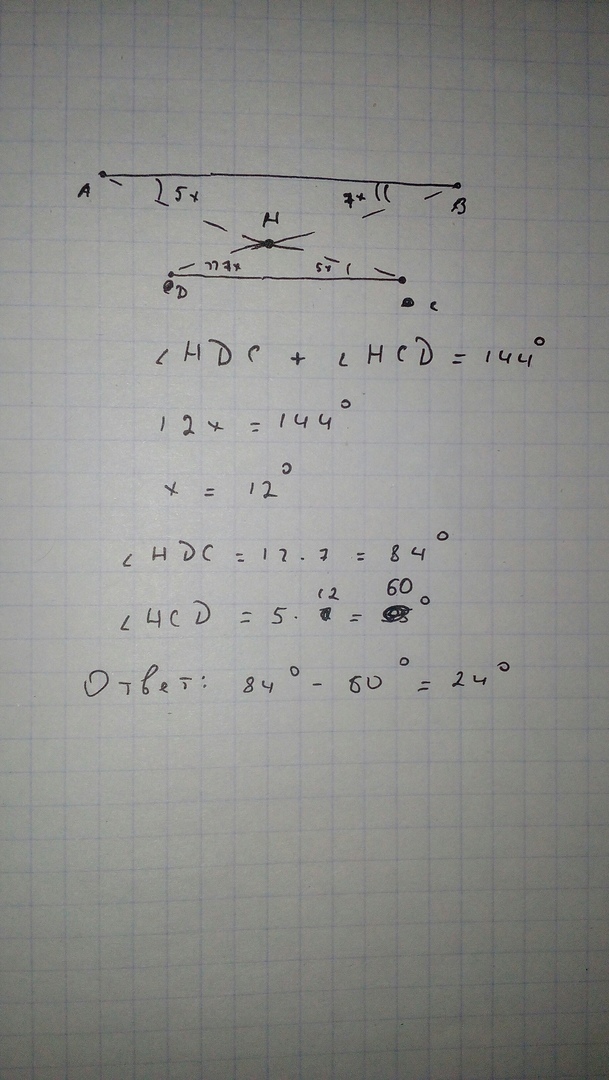 A 5x 7x B
H
7x 5x
D C
∠HDC + ∠HCD = 144°
12x = 144°
x = 12°
∠HDC = 12 · 7 = 84°
∠HCD = 5 · 12 = 60°
Ответ: 84° - 60° = 24°